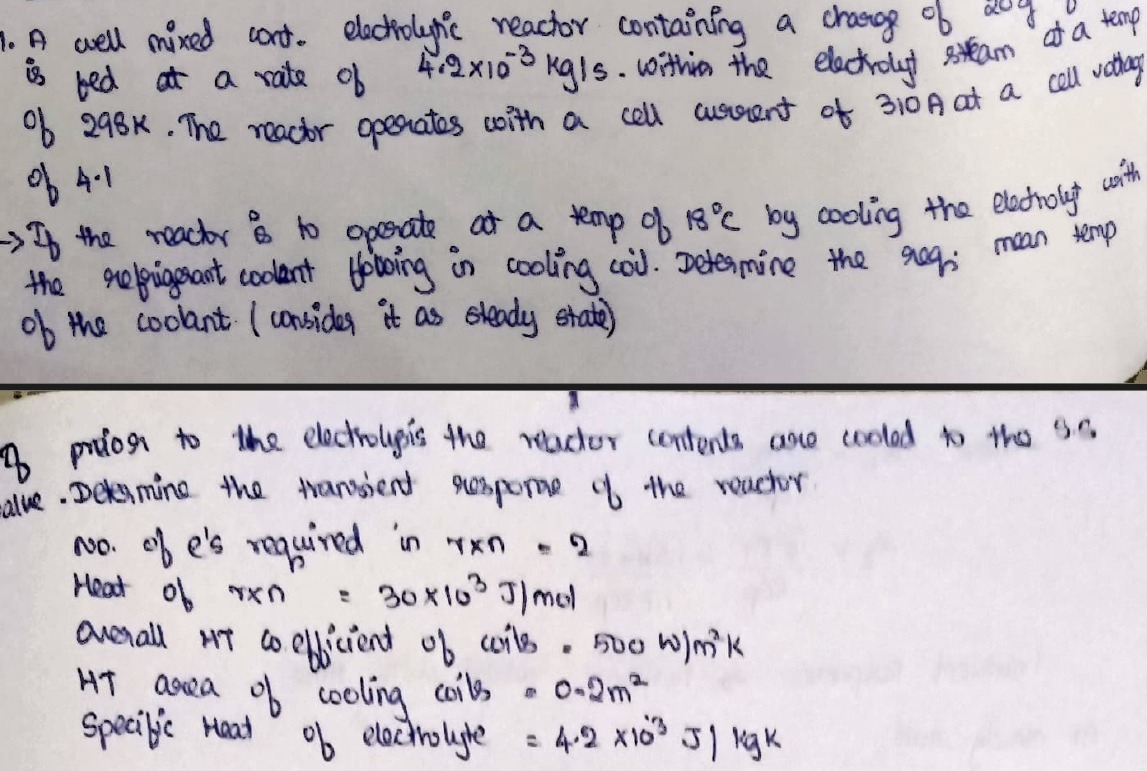 1. A well mixed cont. electrolytic reactor containing a charge of 20g
is fed at a rate of 4.2x10⁻³ kg/s. within the electrolyt steam at a temp
of 298K. The reactor operates with a cell current of 310 A at a cell voltag
of 4.1
-> If the reactor is to operate at a temp of 18°C by cooling the electrolyt with
the refrigerant coolant flowing in cooling coil. Determine the req; mean temp
of the coolant. (consider it as steady state)
If prior to the electrolysis the reactor contents are cooled to the S.S
value. Determine the transient response of the reactor.
No. of e's required in rxn = 2
Heat of rxn = 30x10³ J/mol
Overall HT co.efficient of coils = 500 w/m²K
HT area of cooling coils = 0.2m²
Specific Heat of electrolyte = 4.2 x10³ J/kgK